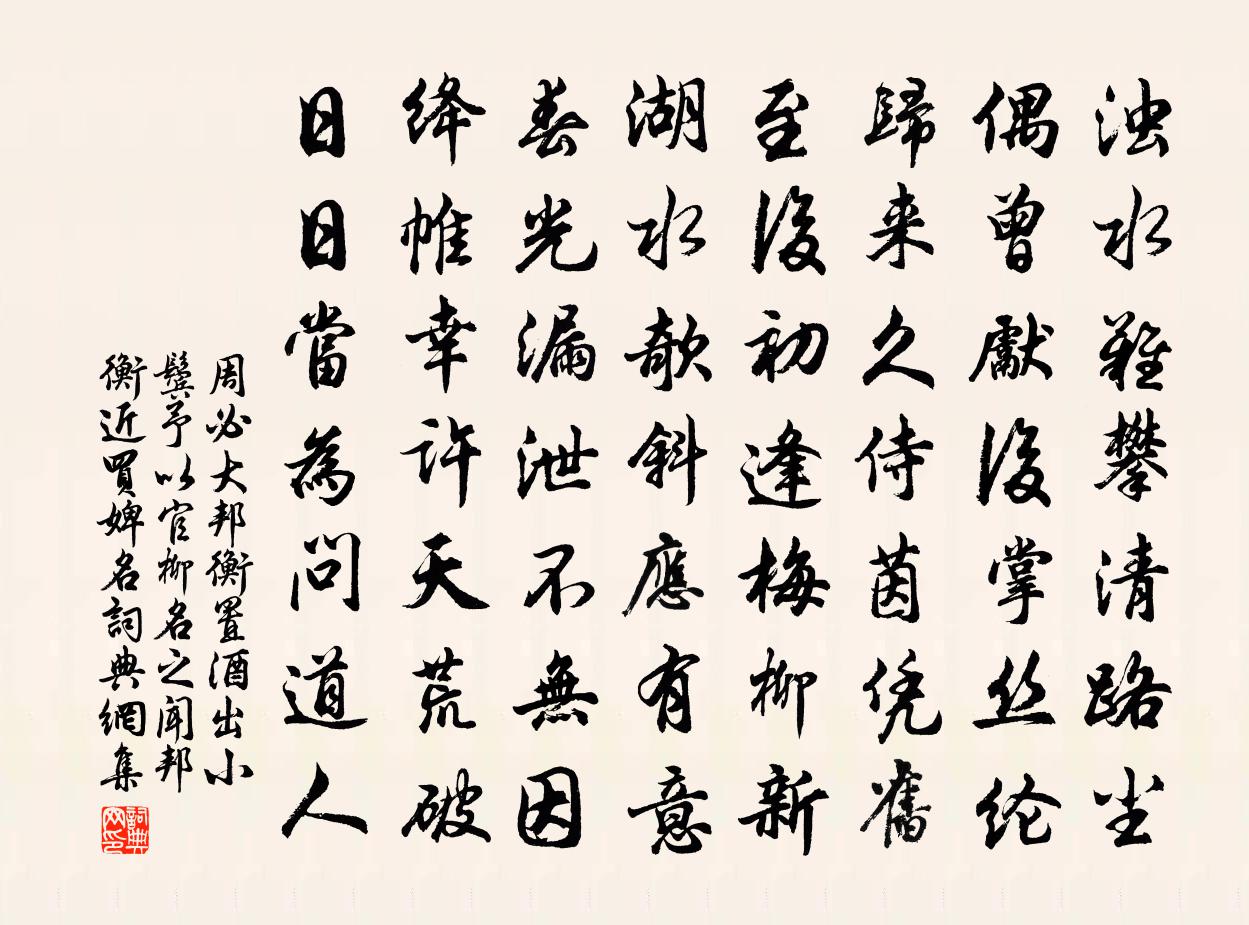 浊水難攀清路尘
偶曾獻後掌丝纶
歸来久侍茵凭舊
至後初逢梅柳新
湖水欹斜應有意
春光漏泄不無因
绛帷幸许天荒破
日日當為问道人
周必大邦衡置酒出小
鬟予以官柳名之闻邦
衡近買婢名詞典網集
詞典网印